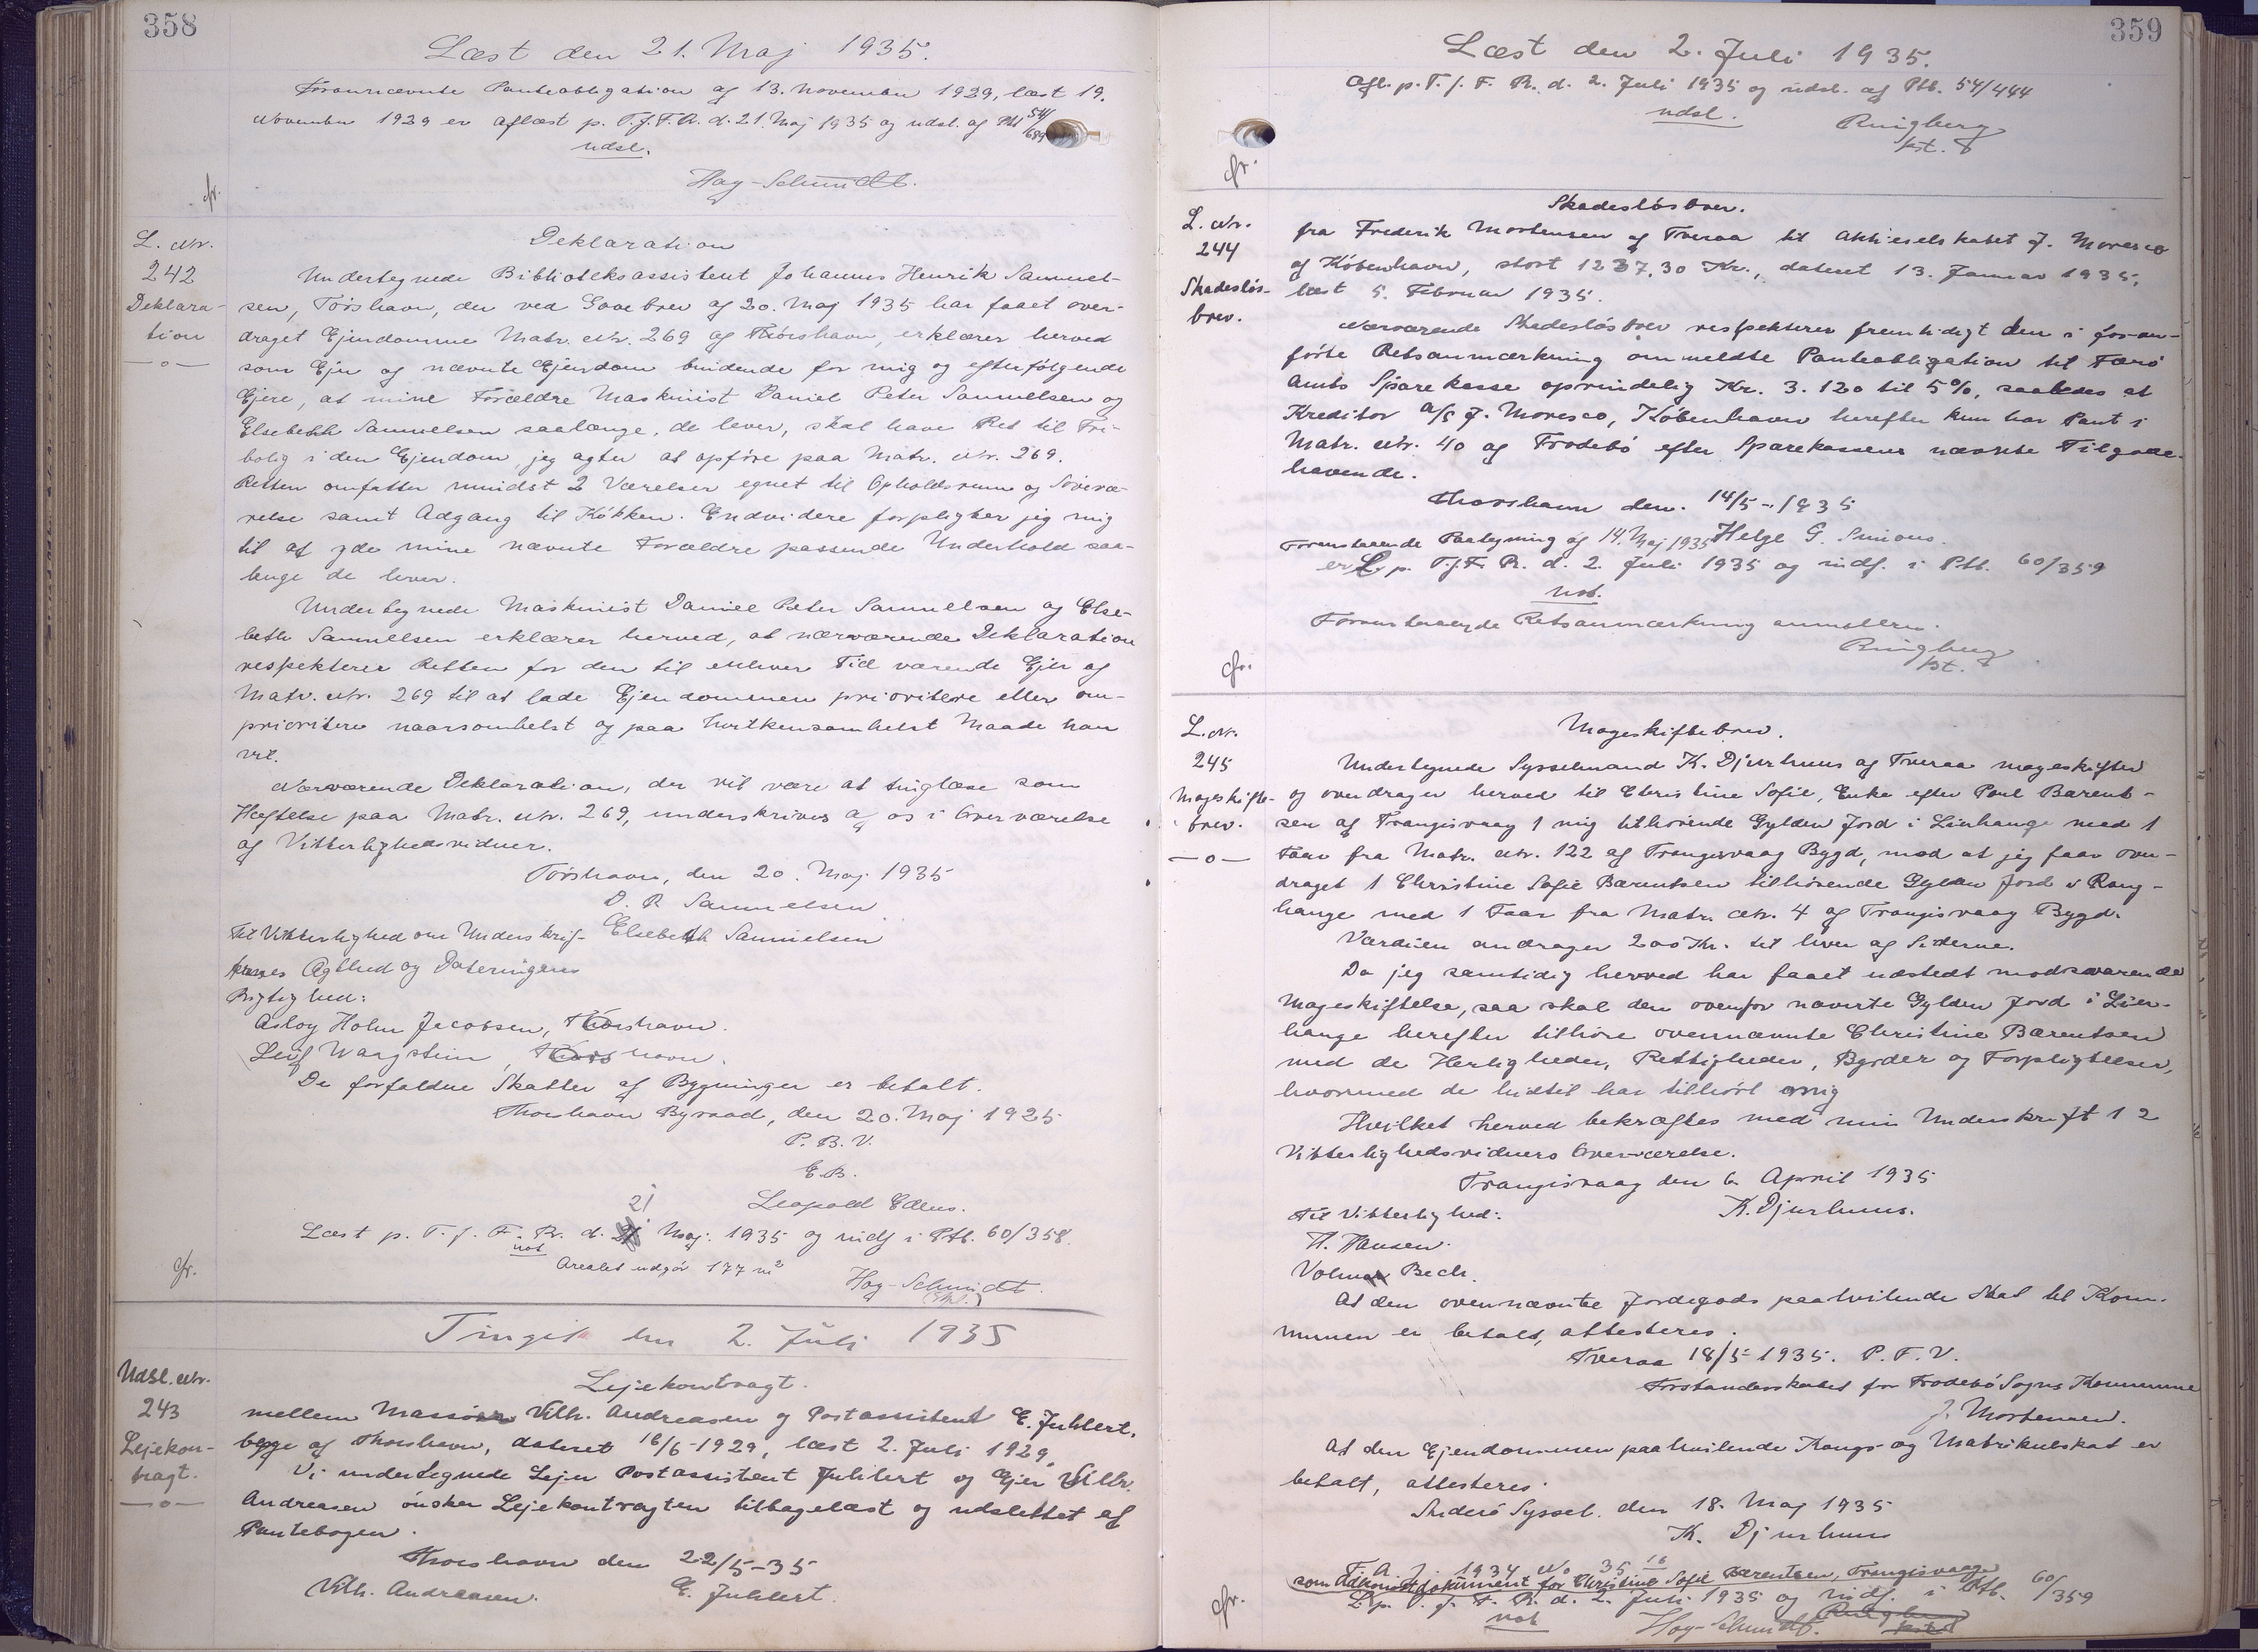 358
Læst den 21. Maj 1935.
Forannævnte Panteobligation af 13. November 1929, læst 19.
November 1929 er aflæst p. T.f.F.R. d. 21. Maj 1935 og udsl. af Ptb 54/689
udsl.
Hay-Schmidt.
cfr.
L. Nr.
242
Deklara-
tion
—o—
Deklaration
Undertegnede Biblioteksassistent Johannes Henrik Samuel-
sen, Tórshavn, der ved Gavebrev af 20. Maj 1935 har faaet over-
draget Ejendommen Matr. Nr. 269 af Thorshavn, erklærer herved
som Ejer af nævnte Ejendom bindende for mig og efterfølgende
Ejere, at mine Forældre Maskinist Daniel Peter Samuelsen og
Elsebeth Samuelsen saalænge, de lever, skal have Ret til Fri-
bolig i den Ejendom, jeg agter at opføre paa Matr. Nr. 269.
Retten omfatter mindst 2 Værelser egnet til Opholdsrum og Sovevæ-
relse samt Adgang til Køkken. Endvidere forpligter jeg mig
til at yde mine nævnte Forældre passende Underhold saa-
længe de lever.
Undertegnede Maskinist Daniel Peter Samuelsen og Else-
beth Samuelsen erklærer herved, at nærværende Deklaration
respekterer Retten for den til enhver Tid værende Ejer af
Matr. Nr. 269 til at lade Ejendommen prioritere eller om-
prioritere naarsomhelst og paa hvilkensomhelst Maade han
vil.
Nærværende Deklaration, der vil være at tinglæse som
Hæftelse paa Matr. Nr. 269, underskrives af os i Overværelse
af Vitterlighedsvidner.
Tórshavn, den 20. Maj 1935
D. P. Samuelsen
Til Vitterlighed om Underskrif- Elsebeth Samuelsen
ternes Ægthed og Dateringens
Rigtighed:
Aslog Holm Jacobsen, Thorshavn.
Leif Waagstein, Thorshavn.
De forfaldne Skatter af Bygninger er betalt.
Thorshavn Byraad, den 20. Maj 1925
P. B. V.
E.B.
Leopold Edens.
21
Læst p. T. f. F. R. d. 21 Maj 1935 og indf i Ptb. 60/358.
not
Arealet udgør 177 m²
Hay-Schmidt.
cfr.
Tinget den 2. Juli 1935
Udsl. Nr.
243
Lejekon-
tragt.
—o—
Lejekontragt.
mellem Massør Vilh. Andreasen og Postassistent E. Juhlert,
begge af Thorshavn, dateret 16/6-1929, læst 2. Juli 1929.
Vi undertegnede Lejer Postassistent Juhlert og Ejer Vilh.
Andreasen ønsker Lejekontragten tilbagelæst og udslettet af
Pantebogen.
Thorshavn den 22/5-35
Vilh. Andreasen. E. Juhlert.
359
Læst den 2. Juli 1935.
Afl. p. T. f. F. R. d. 2. Juli 1935 og udsl. af Ptb. 54/444
udsl.
Ringberg
kst.
cfr.
L. Nr.
244
Skadesløs-
brev.
Skadesløsbrev.
fra Frederik Mortensen af Tveraa til Aktieselskabet J. Moresco
af København, stort 1237,30 Kr., dateret 13. Januar 1935,
læst 5. Februar 1935.
Nærværende Skadesløsbrev respekterer fremtidigt den i foran-
førte Retsanmærkning ommeldte Panteobligation til Færø
Amts Sparekasse oprindelig Kr. 3.120 til 5%, saaledes at
Kreditor A/S J. Moresco, København herefter kun har Pant i
Matr. Nr. 40 af Frodebø efter Sparekassens nævnte Tilgode-
havende.
Thorshavn den. 14/5-1935
Foranstaaende Paategning af 14. Maj 1935 Helge G. Simons.
er L. p. T.f.F. R. d. 2. Juli 1935 og indf. i Ptb. 60/359
not.
Foranstaaende Retsanmærkning annulleres.
Ringberg
kst.
cfr.
L. Nr.
245
Mageskifte-
brev.
—o—
Mageskiftebrev.
Undertegnede Sysselmand K. Djurhuus af Tveraa mageskifter
og overdrager herved til Christine Sofie, Enke efter Poul Bærent-
sen af Trangisvaag 1 mig tilhørende Gylden Jord i Lienhange med 1
Faar fra Matr. Nr. 122 af Trangisvaag Bygd, mod at jeg faar over-
draget 1 Christine Sofie Bærentsen tilhørende Gylden Jord i Rang-
hange med 1 Faar fra Matr. Nr. 4 af Trangisvaag Bygd.
Værdien andrager 200 Kr. til hver af Siderne.
Da jeg samtidig herved har faaet udstedt modsvarende
Mageskiftelse, saa skal den ovenfor nævnte Gylden Jord i Lien-
hange herefter tilhøre ovennævnte Christine Bærentsen
med de Herligheder, Rettigheder, Byrder og Forpligtelser,
hvormed de hidtil har tilhørt mig
Hvilket herved bekræftes med min Underskrift i 2
Vitterlighedsvidners Overværelse.
Trangisvaag den 6 April 1935
Til Vitterlighed: K. Djurhuus.
H. Hansen.
Volmer Bech.
At den ovennævnte Jordegods paahvilende Skat til Kom-
munen er betalt, attesteres.
Tveraa 18/5 1935. P. F. V.
Forstanderskabet for Frodebø Sogns Kommune
J. Mortensen.
At den Ejendommen paahvilende Kongs- og Matrikulskat er
betalt, attesteres.
Suderø Syssel. den 18. Maj 1935
K. Djurhuus
F. A. J. 1934 No 35 16
som Adkomstdokument for Christine Sofie Bærentsen, Trangisvaag
L. p. T. f. F. R. d. 2. Juli 1935 og indf. i Ptb. 60/359
not
Hay-Schmidt. Ringberg
kst.
cfr.